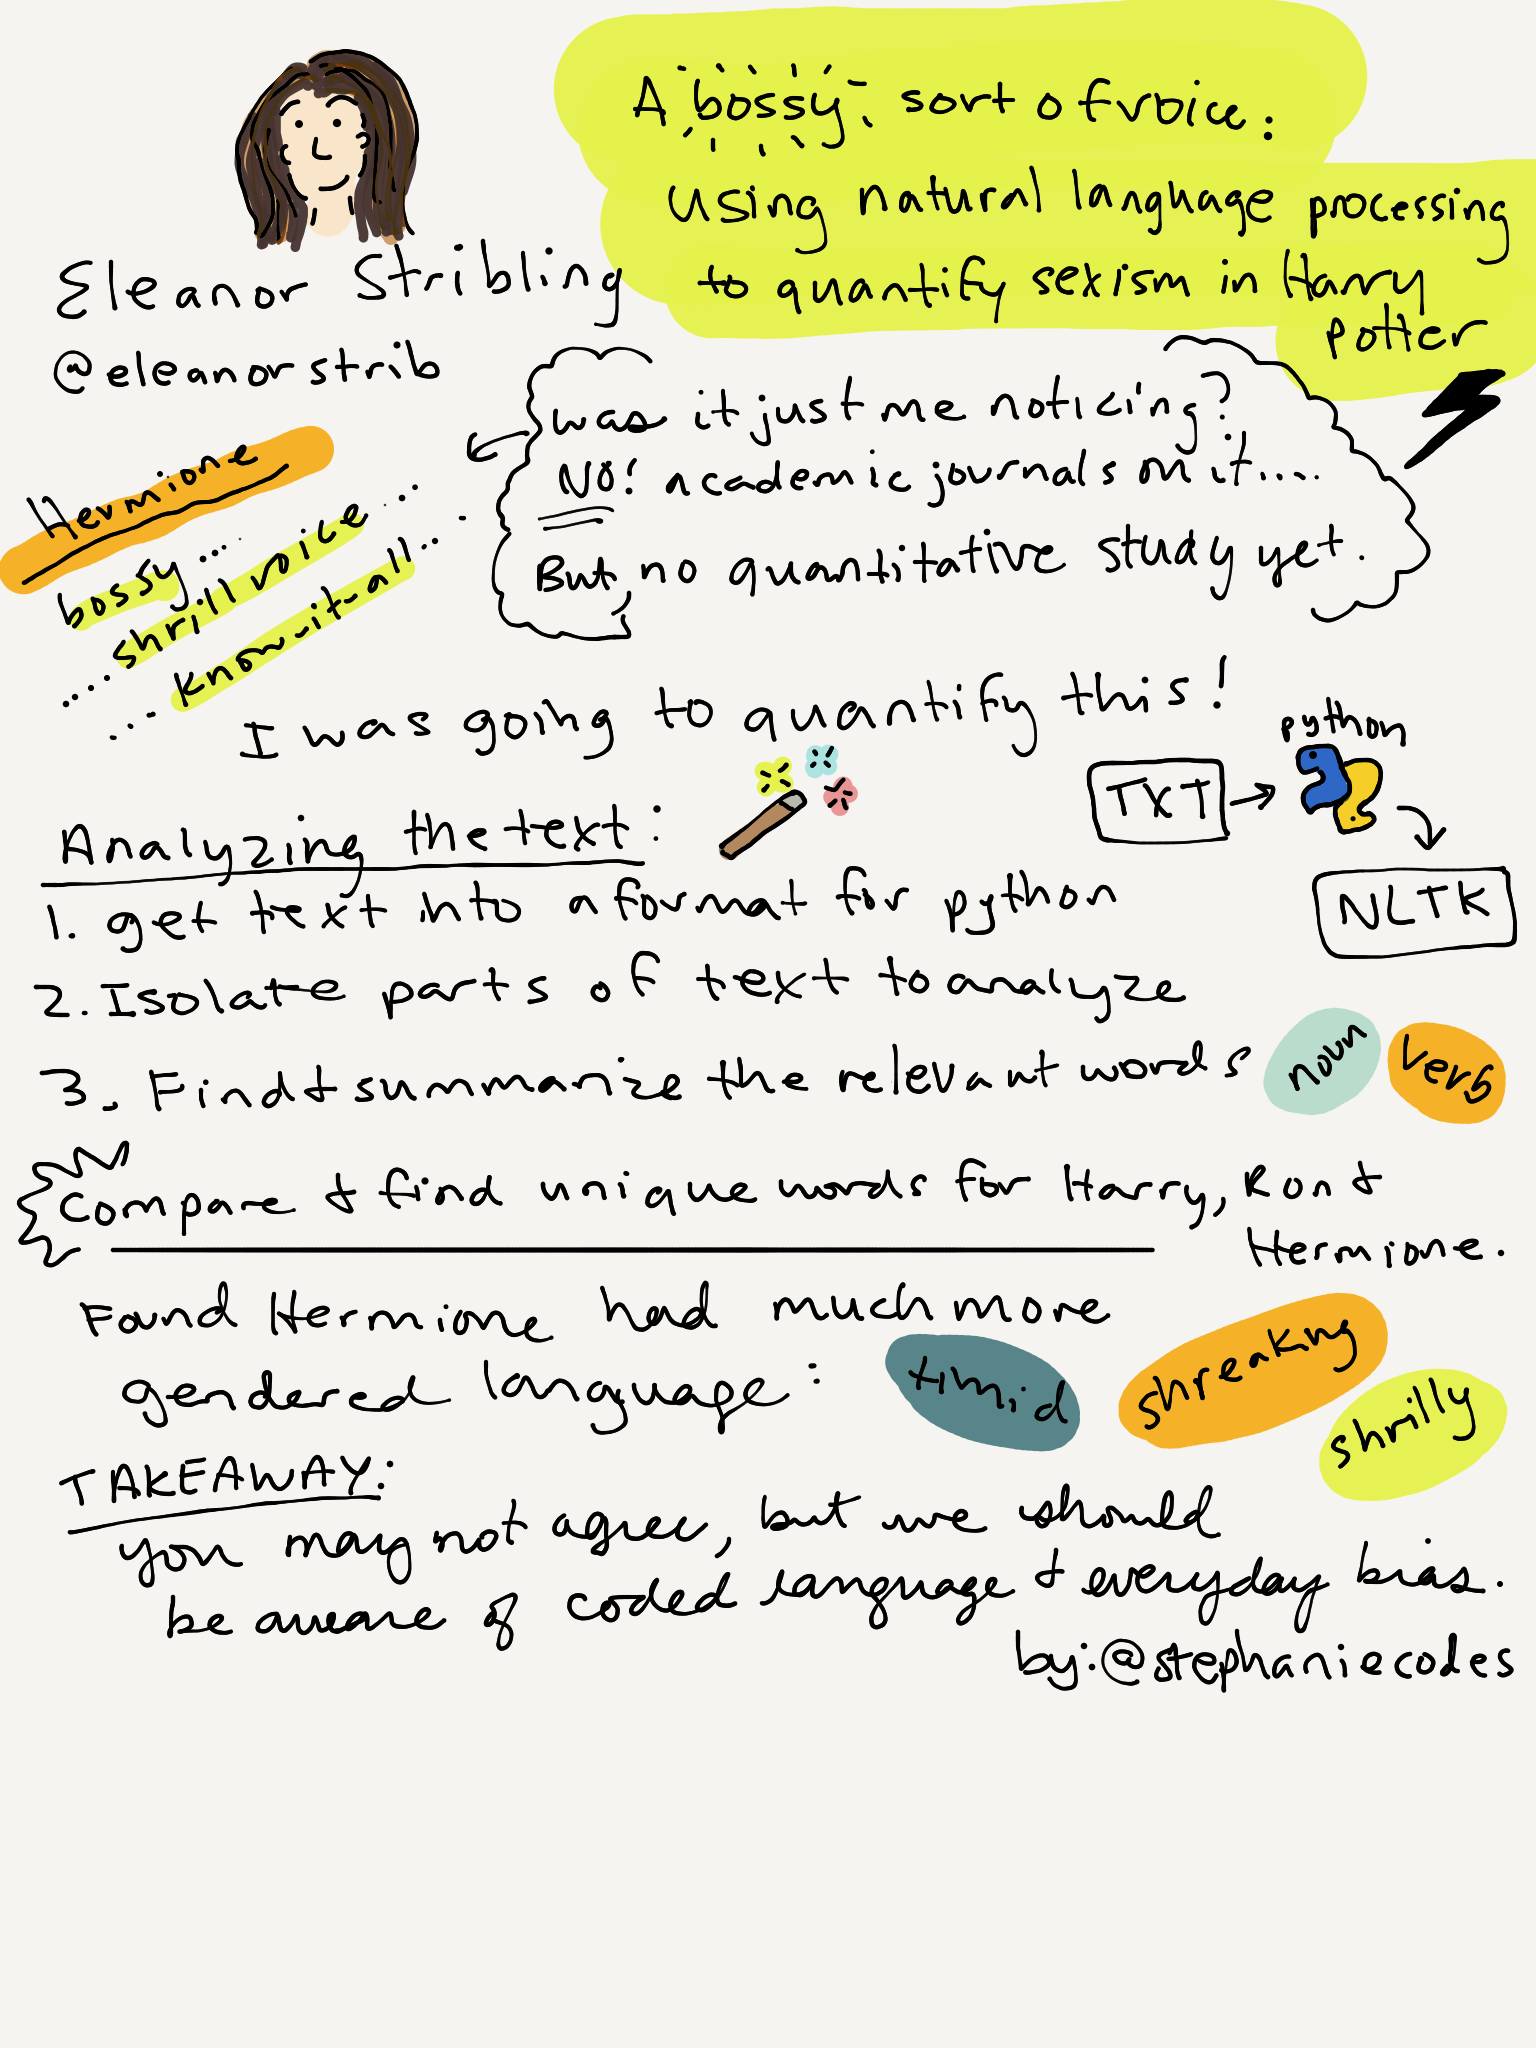 A bossy sort of voice:
using natural language processing
to quantify sexism in Harry
Potter
Eleanor Stribling
@eleanorstrib
was it just me noticing?
NO! academic journals on it....
But, no quantitative study yet.
Hermione
bossy...
....shrill voice...
...know-it-all...
I was going to quantify this!
python
TXT
NLTK
Analyzing the text:
1. get text into a format for python
2. Isolate parts of text to analyze
3. Find & summarize the relevant words
noun
verb
Compare & find unique words for Harry, Ron &
Hermione.
Found Hermione had much more
gendered language:
timid
shreaking
shrilly
TAKEAWAY:
you may not agree, but we should
be aware of coded language & everyday bias.
by:@stephaniecodes